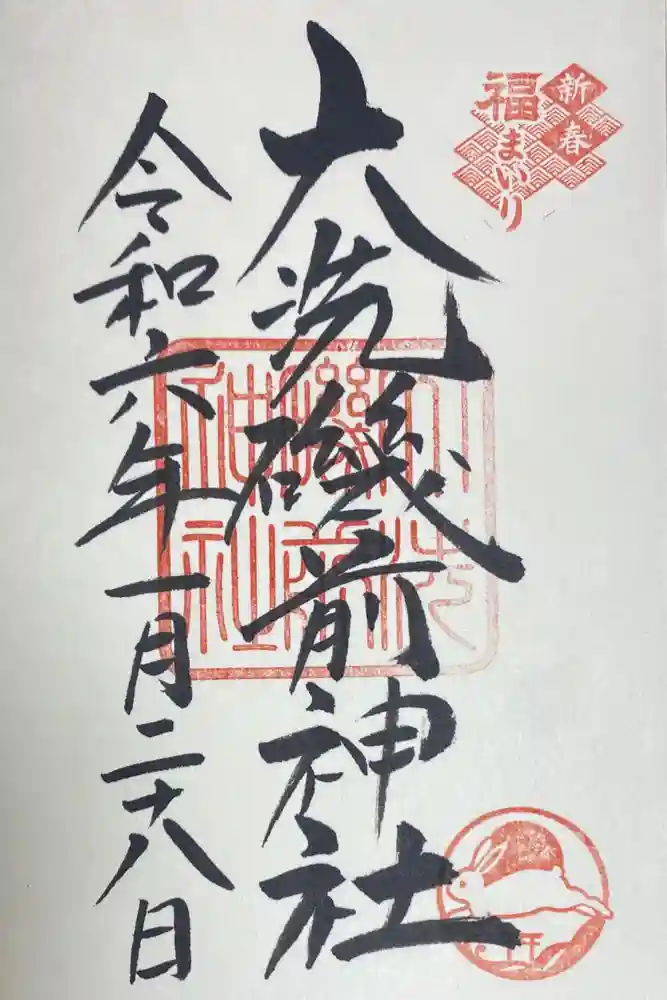 新春
福まいり
大洗磯前神社
令和六年一月二十八日
大洗
磯前
神社